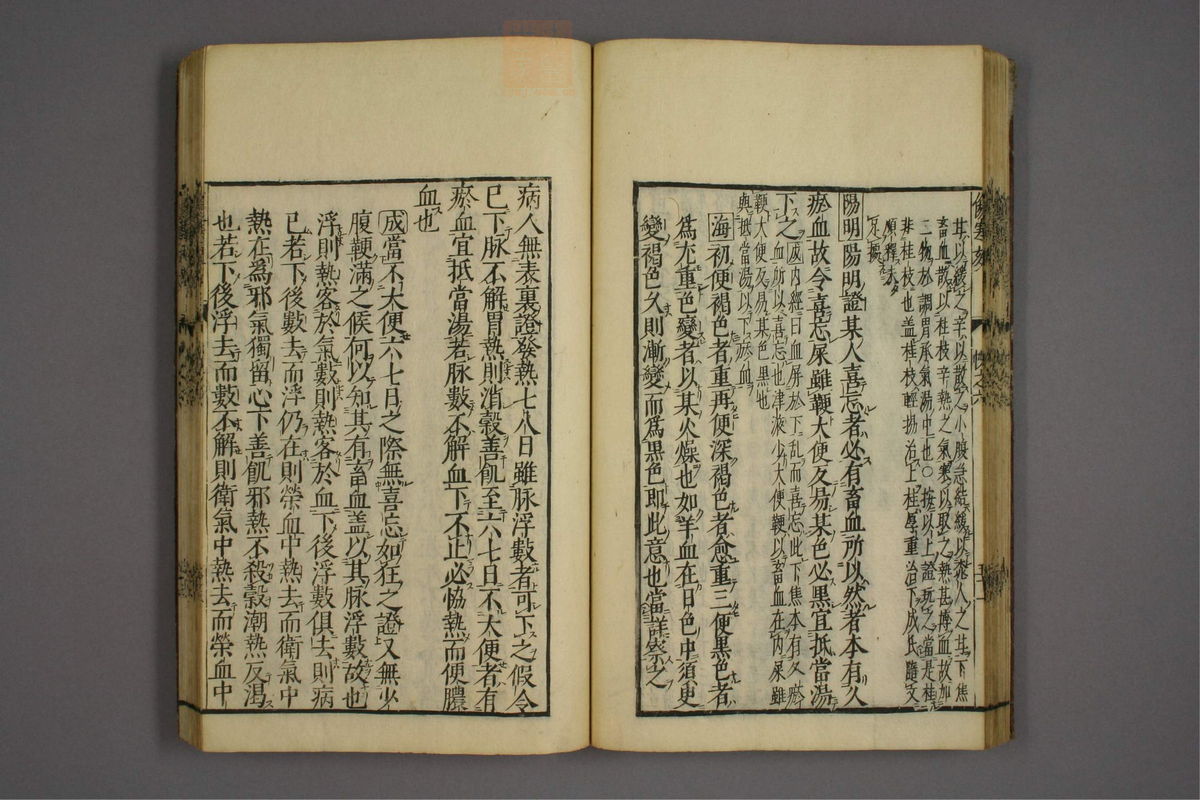 甘以緩之辛以散之小腹急結緩以桃人之甘下焦
畜血散以桂枝辛熱之氣寒以取之熱甚摶血故加
二物於調胃承氣湯中也○按以上證玩之當是桂
非桂枝也盖桂枝輕揚治上桂厚重治下成氏隨文
順釋未
足據
陽明陽明證其人喜忘者必有畜血所以然者本有久
瘀血故令喜忘屎雖鞕大便反易其色必黒宜抵當湯
下之成内經曰血屏於下乱而喜忘此下焦本有久瘀
血所以喜忘也津液少大便鞕以畜血在内屎雖
鞕大便反易其色黒也
與抵當湯以下瘀血
海初便褐色者重再便深褐色者愈重三便黒色者
爲尤重色變者以其火燥也如羊血在日色中須更
變褐色久則漸變而爲黒色即此意也當詳察之
病人無表裏證發熱七八日雖脉浮數者可下之假令
已下脉不解胃熱則消穀善飢至六七日不大便者有
瘀血宜抵當湯若脉數不解血下不止必恊熱而便膿
血也
成當不大便六七日之際無喜忘如狂之證又無少
腹鞕滿之候何以知其有畜血盖以其脉浮數故也
浮則熱客於氣數則熱客於血下後浮數俱去則病
已若下後數去而浮仍在則榮血中熱去而衛氣中
熱在爲邪氣獨留心下善飢邪熱不殺穀潮熱反渴
也若下後浮去而數不解則衛氣中熱去而榮血中